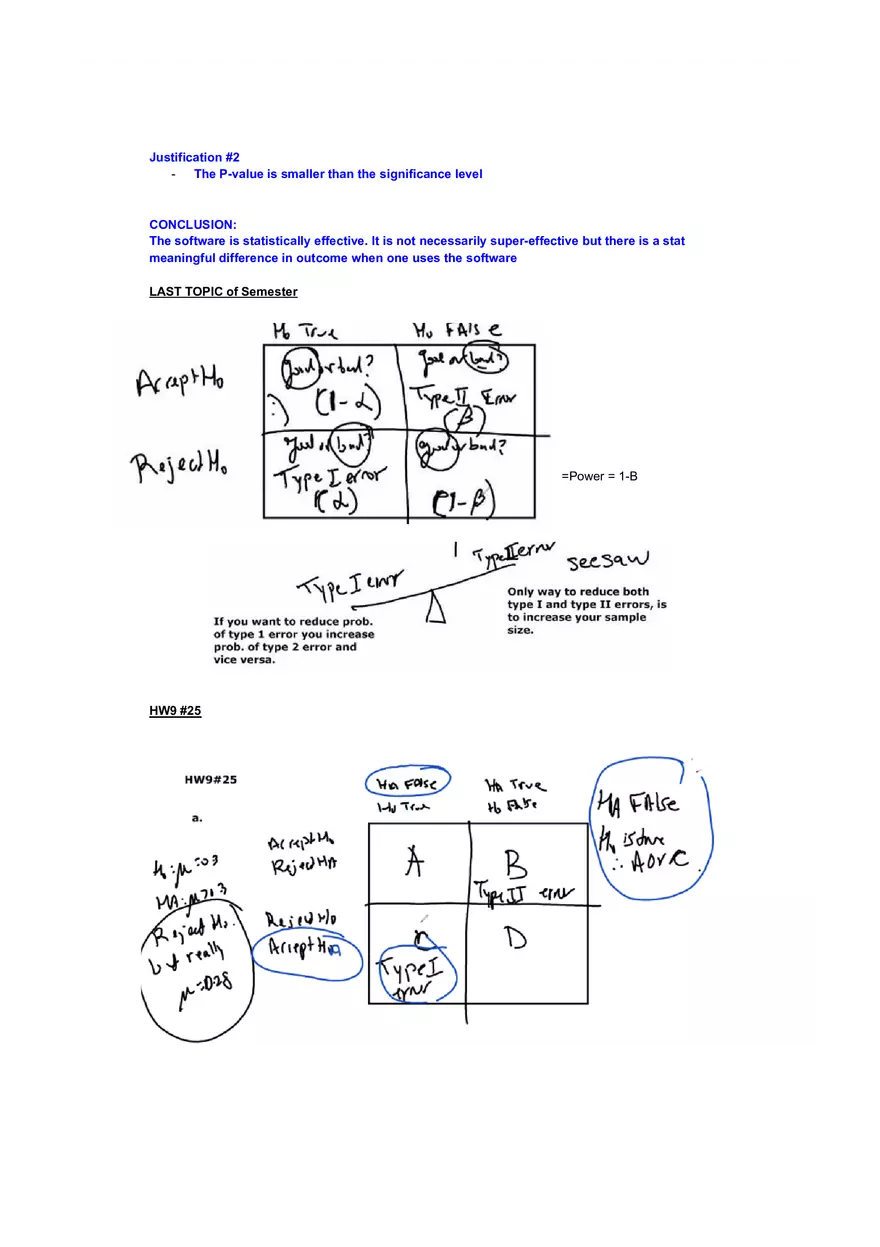 Justification #2
- The P-value is smaller than the significance level
CONCLUSION:
The software is statistically effective. It is not necessarily super-effective but there is a stat
meaningful difference in outcome when one uses the software
LAST TOPIC of Semester
H0 True H0 FAlse
good or bad? good or bad?
Accept H0
:) (1-α) Type II Error
(β)
good or bad? good or bad?
Reject H0
Type I error
(α) (1-β)
=Power = 1-B
Type I error Type II error seesaw
Only way to reduce both
type I and type II errors, is
to increase your sample
size.
If you want to reduce prob.
of type 1 error you increase
prob. of type 2 error and
vice versa.
HW9 #25
HW9#25
HA False HA True
H0 True H0 False
a.
HA FAlse
H0 is true
∴ A or C
Accept H0
Reject HA
A B
Type II error
H0: μ=03
HA: μ>03
Reject H0.
but really
μ=028
Reject H0
Accept HA
D
Type I
error